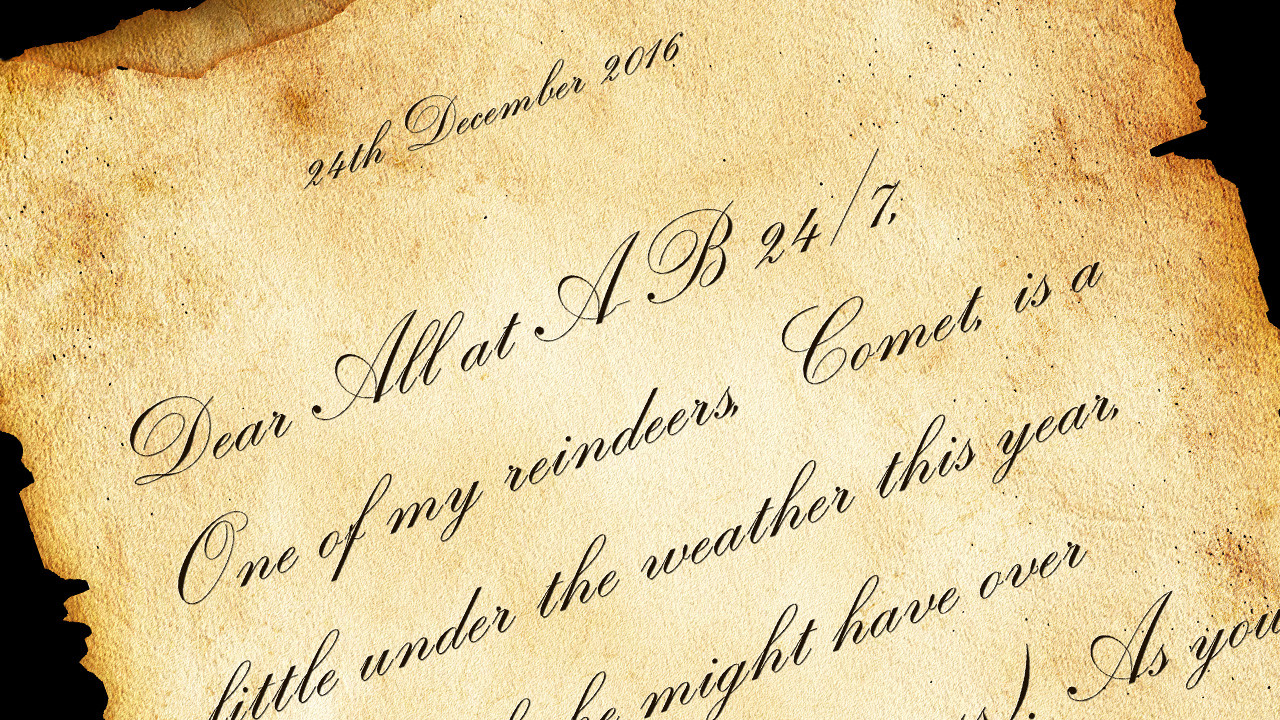 24th December 2016
Dear All at A B 24/7,
One of my reindeers, Comet, is a
little under the weather this year,
he might have over
). As you